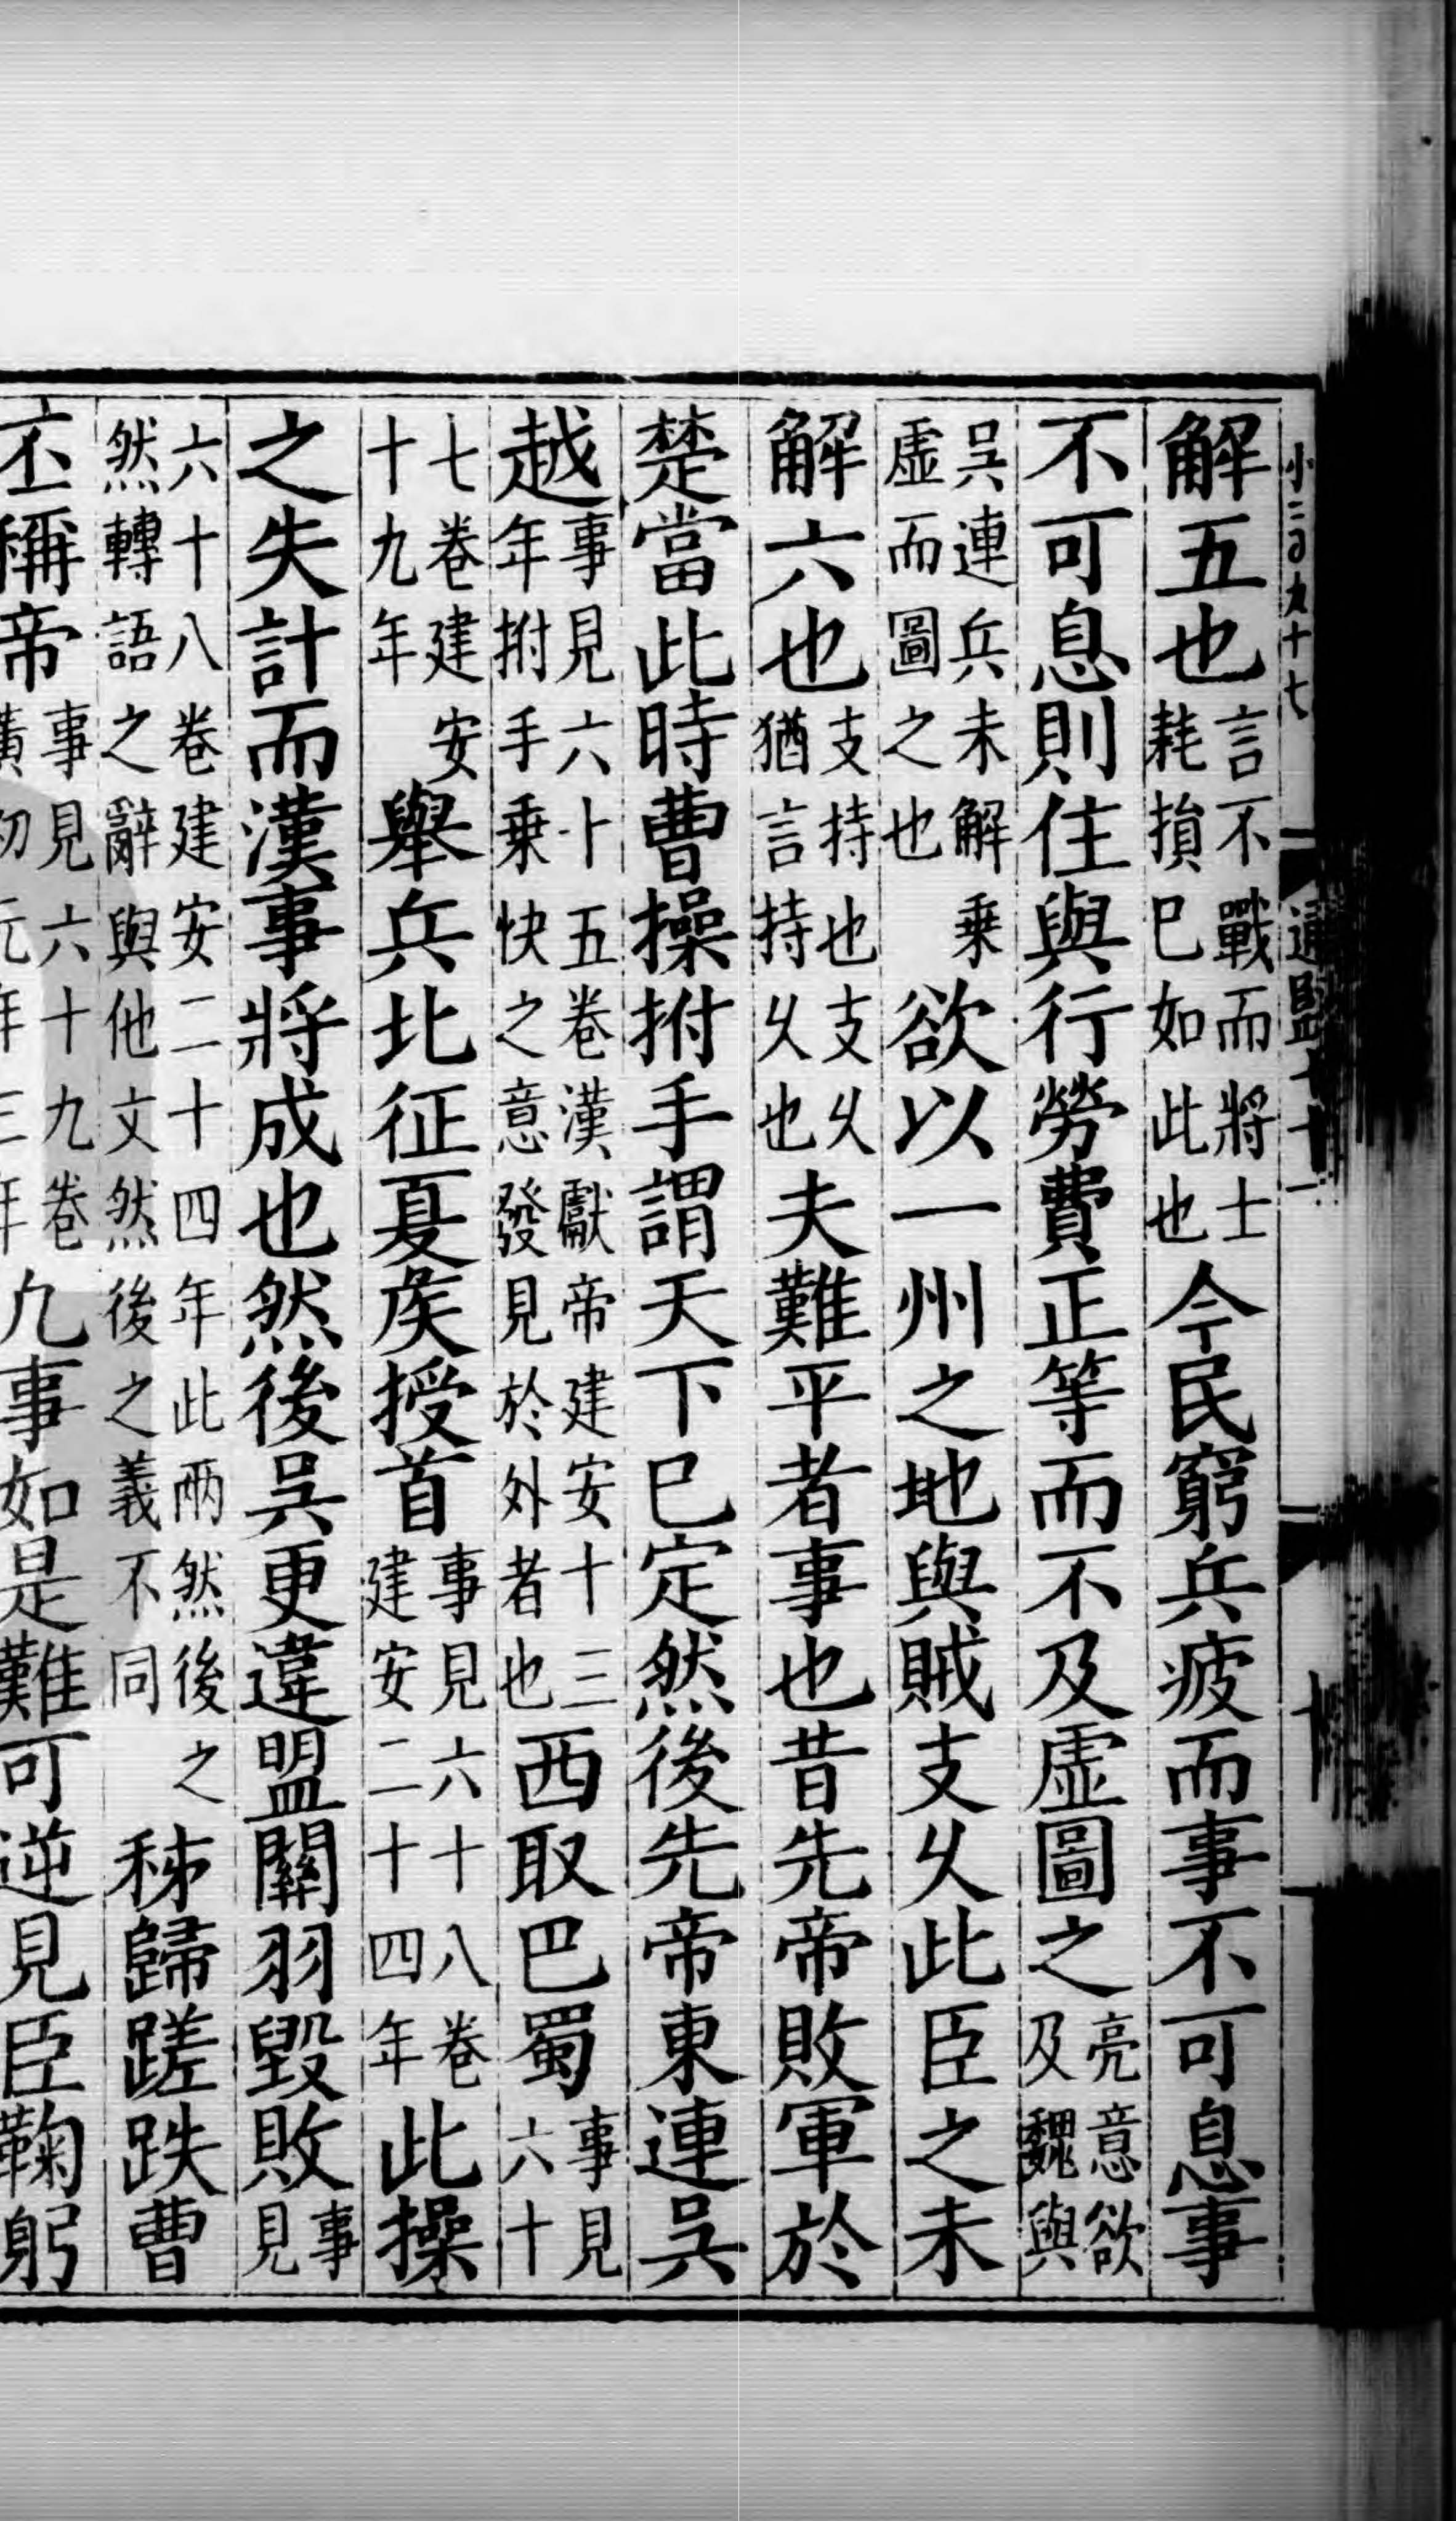 小三百九十七　通鑑七十一
解五也言不戰而將士耗損巳如此也今民窮兵疲而事不可息事
不可息則住與行勞費正等而不及虛圖之亮意欲及魏與
吳連兵未解乗虛而圖之也欲以一州之地與賊支乆此臣之未
解六也支持也支乆猶言持乆也夫難平者事也昔先帝敗軍於
楚當此時曹操拊手謂天下巳定然後先帝東連吳
越事見六十五卷漢獻帝建安十三年拊手乗快之意發見於外者也西取巴蜀事見六十
七卷建安十九年舉兵北征夏矦授首事見六十八卷建安二十四年此操
之失計而漢事將成也然後吳更違盟關羽毀敗事見
六十八卷建安二十四年此兩然後之然轉語之辭與他文然然後之義不同秭歸蹉跌曹
丕稱帝事見六十九卷黃初元年三年凡事如是難可逆見臣鞠躬